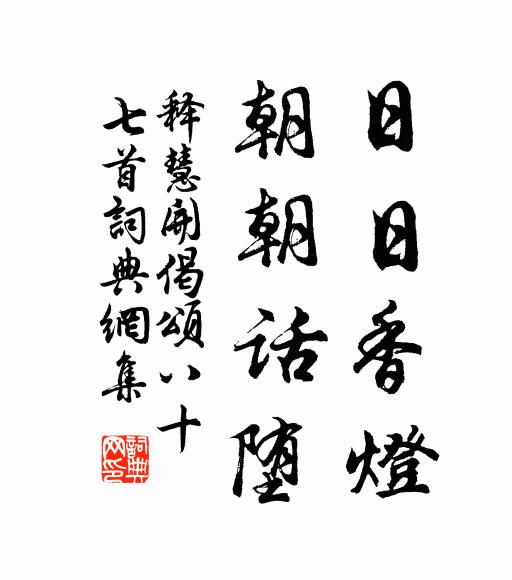 日日香燈
朝朝話堕
释慧開偈頌八十
七首詞典網集
詞典网印